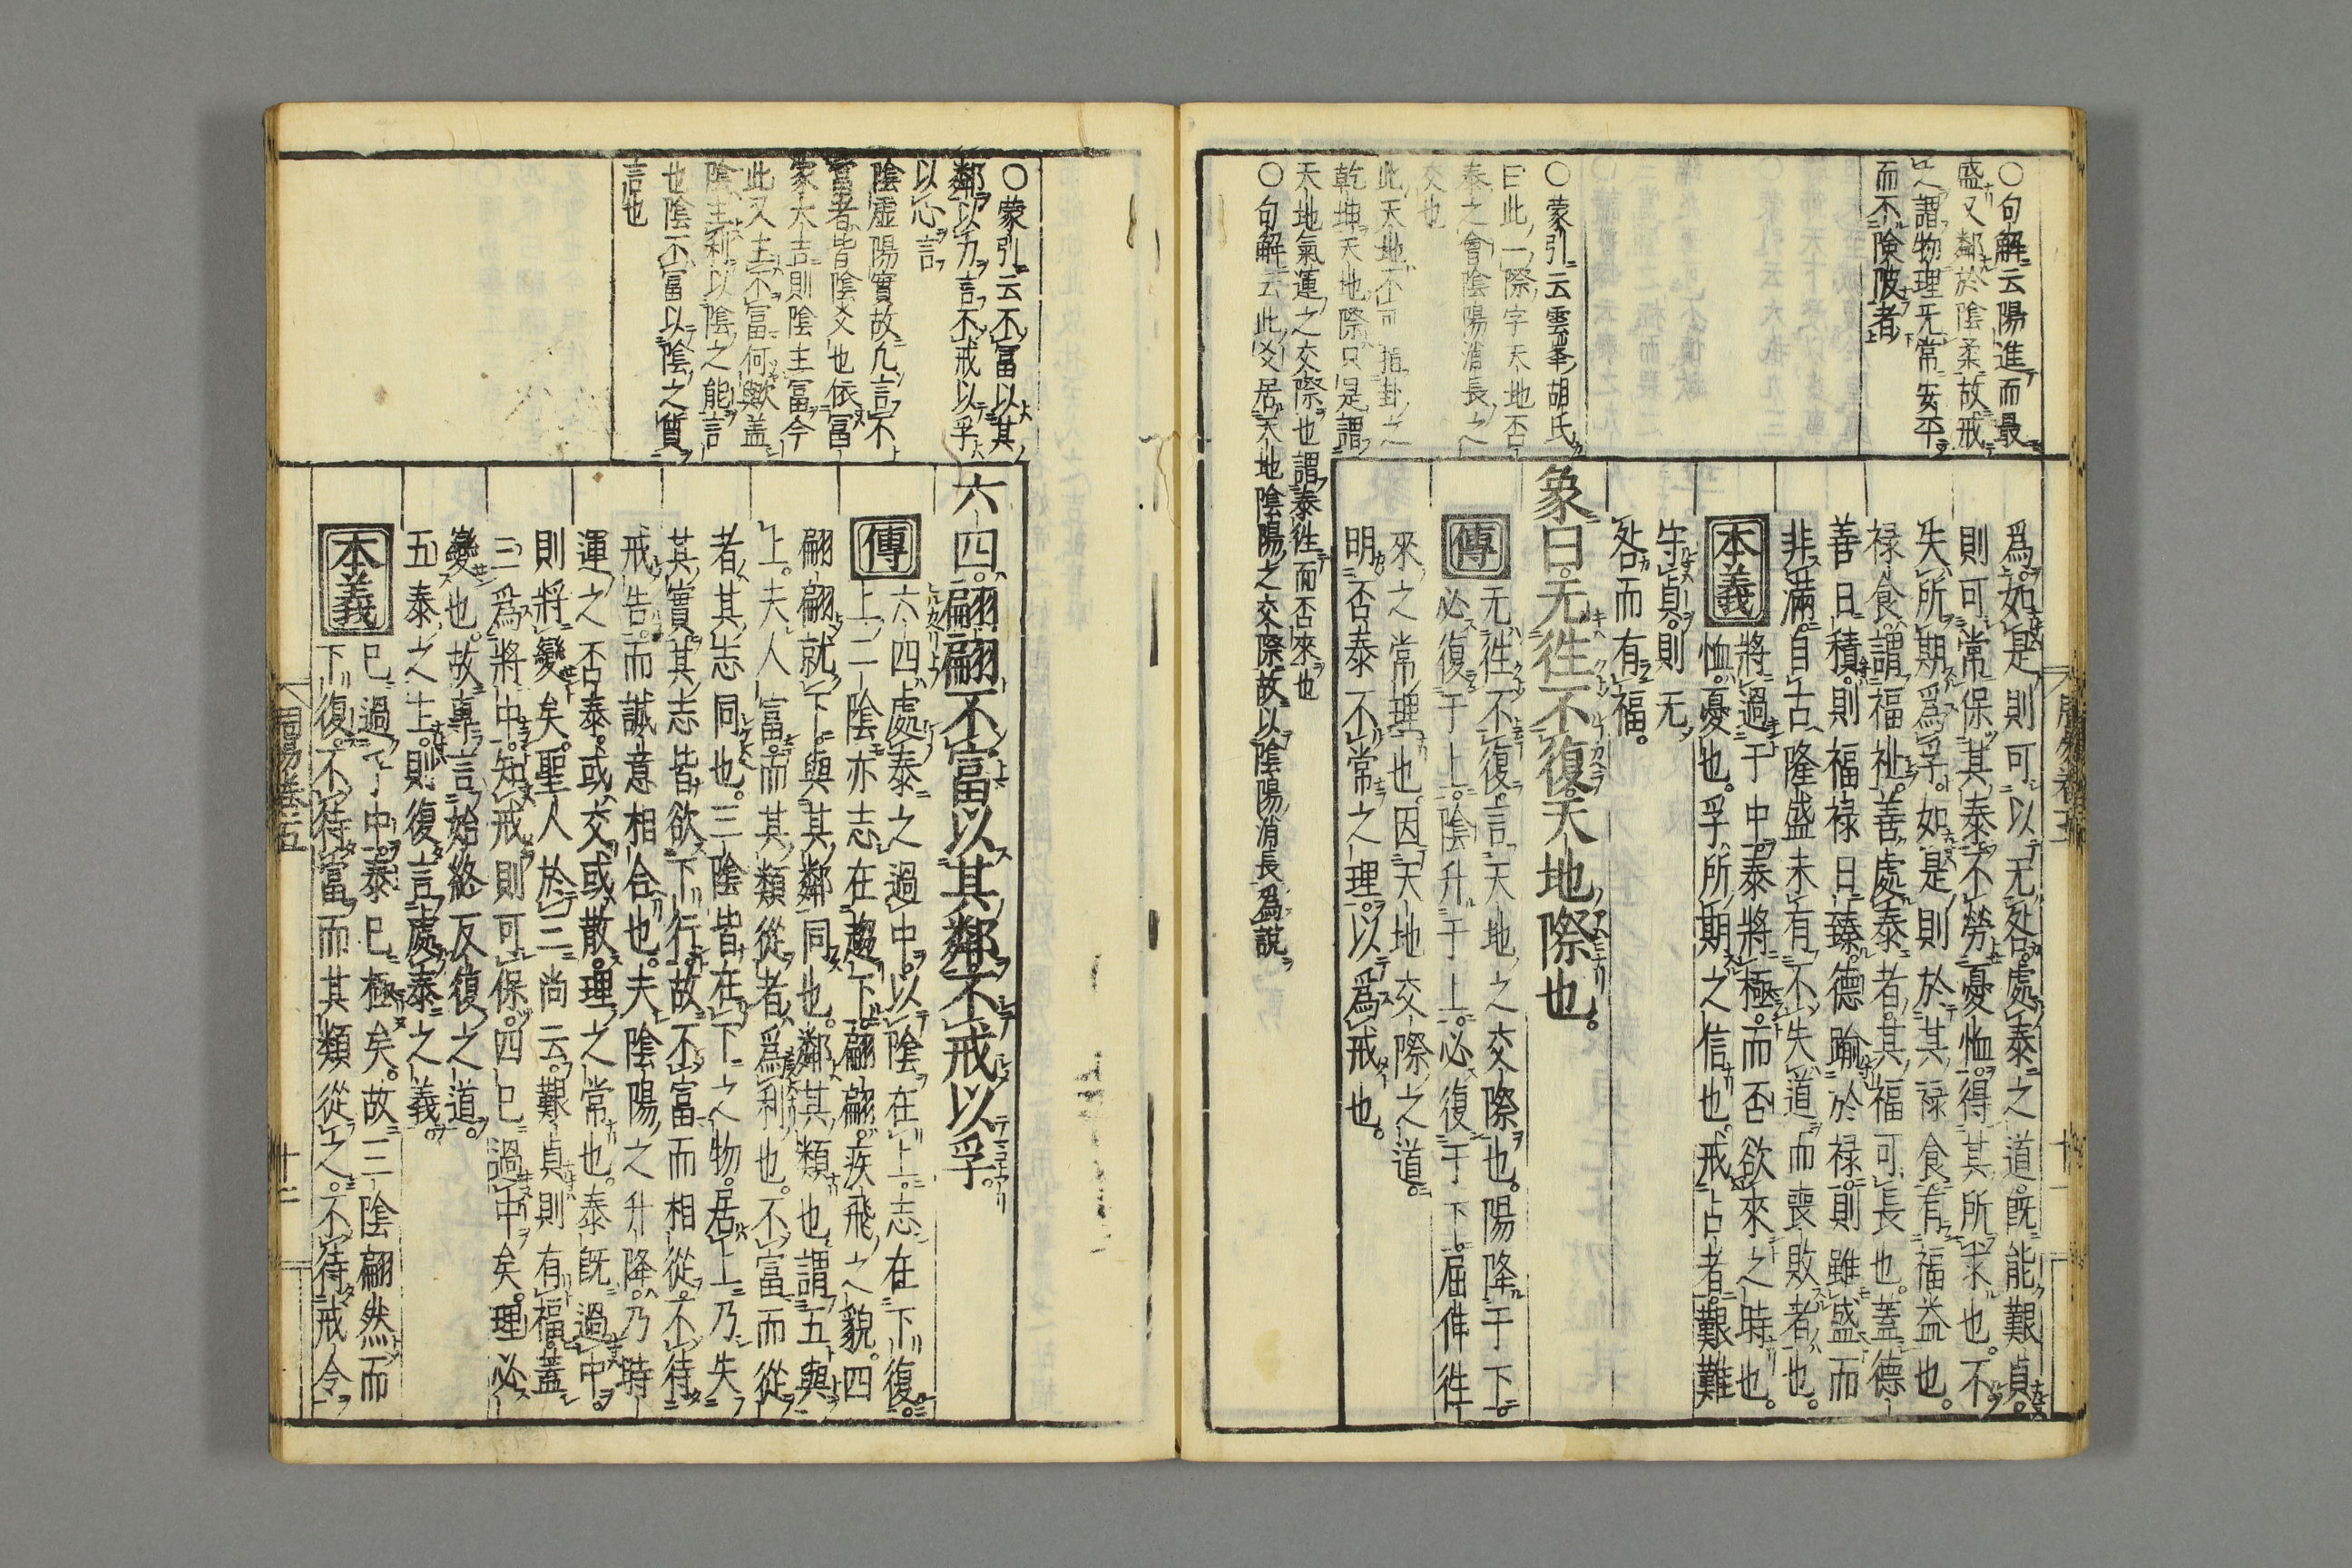 ○句解云陽進而最
盛又鄰於陰柔故戒
之謂物理无常安平
而不險陂者
爲。如是則可以无咎。處泰之道。旣能艱貞。
則可常保其泰。不勞憂恤。得其所求也。不
失所期爲孚。如是則於其祿食有福益也。
祿食。謂福祉。善處泰者。其福可長也。蓋德
善日積。則福祿日臻。德踰於祿。則雖盛而
非滿。自古隆盛未有不失道而喪敗者也。
本義
將過于中。泰將極。而否欲來之時也。
恤。憂也。孚所期之信也。戒占者。艱難
守貞。則无
咎而有福。
○蒙引云雲峯胡氏
曰此一際字天地否
泰之會陰陽消長之
交也
此天地不可指卦之
乾坤天地際只是謂
天地氣運之交際也謂泰徃而否來也
○句解云此爻居天地陰陽之交際故以陰陽消長爲説
象曰。无徃不復。天地際也。
傳
无徃不復。言天地之交際也。陽降于下。
必復于上。陰升于上。必復于下。屈伸徃
來之常理也。因天地交際之道。
明否泰不常之理。以爲戒也。
周易卷五
十一
○蒙引云不富以其
鄰以力言不戒以孚
以心言
陰虛陽實故凡言不
富者皆陰爻也依富
家大吉則陰主富今
此又主不富何歟蓋
陰主利以陰之能言
也陰不富以陰之質
言也
六四。翩翩不富以其鄰。不戒以孚。
傳
六四。處泰之過中。以陰在上。志在下復。
上二陰亦志在趨下。翩翩。疾飛之貌。四
翩翩就下。與其鄰同也。鄰其類也。謂五與
上。夫人富。而其類從者。爲利也。不富而從
者。其志同也。三陰皆在下之物。居上乃失
其實。其志皆欲下行。故不富而相從。不待
戒告。而誠意相合也。夫陰陽之升降。乃時
運之否泰。或交或散。理之常也。泰旣過中。
則將變矣。聖人於三尚云。艱貞則有福。蓋
三爲將中。知戒則可保。四已過中矣。理必
變也。故專言始終反復之道。
五泰之主。則復言處泰之義。
本義
已過乎中。泰已極矣。故三陰翩然而
下復。不待富而其類從之。不待戒令
周易卷五
十二